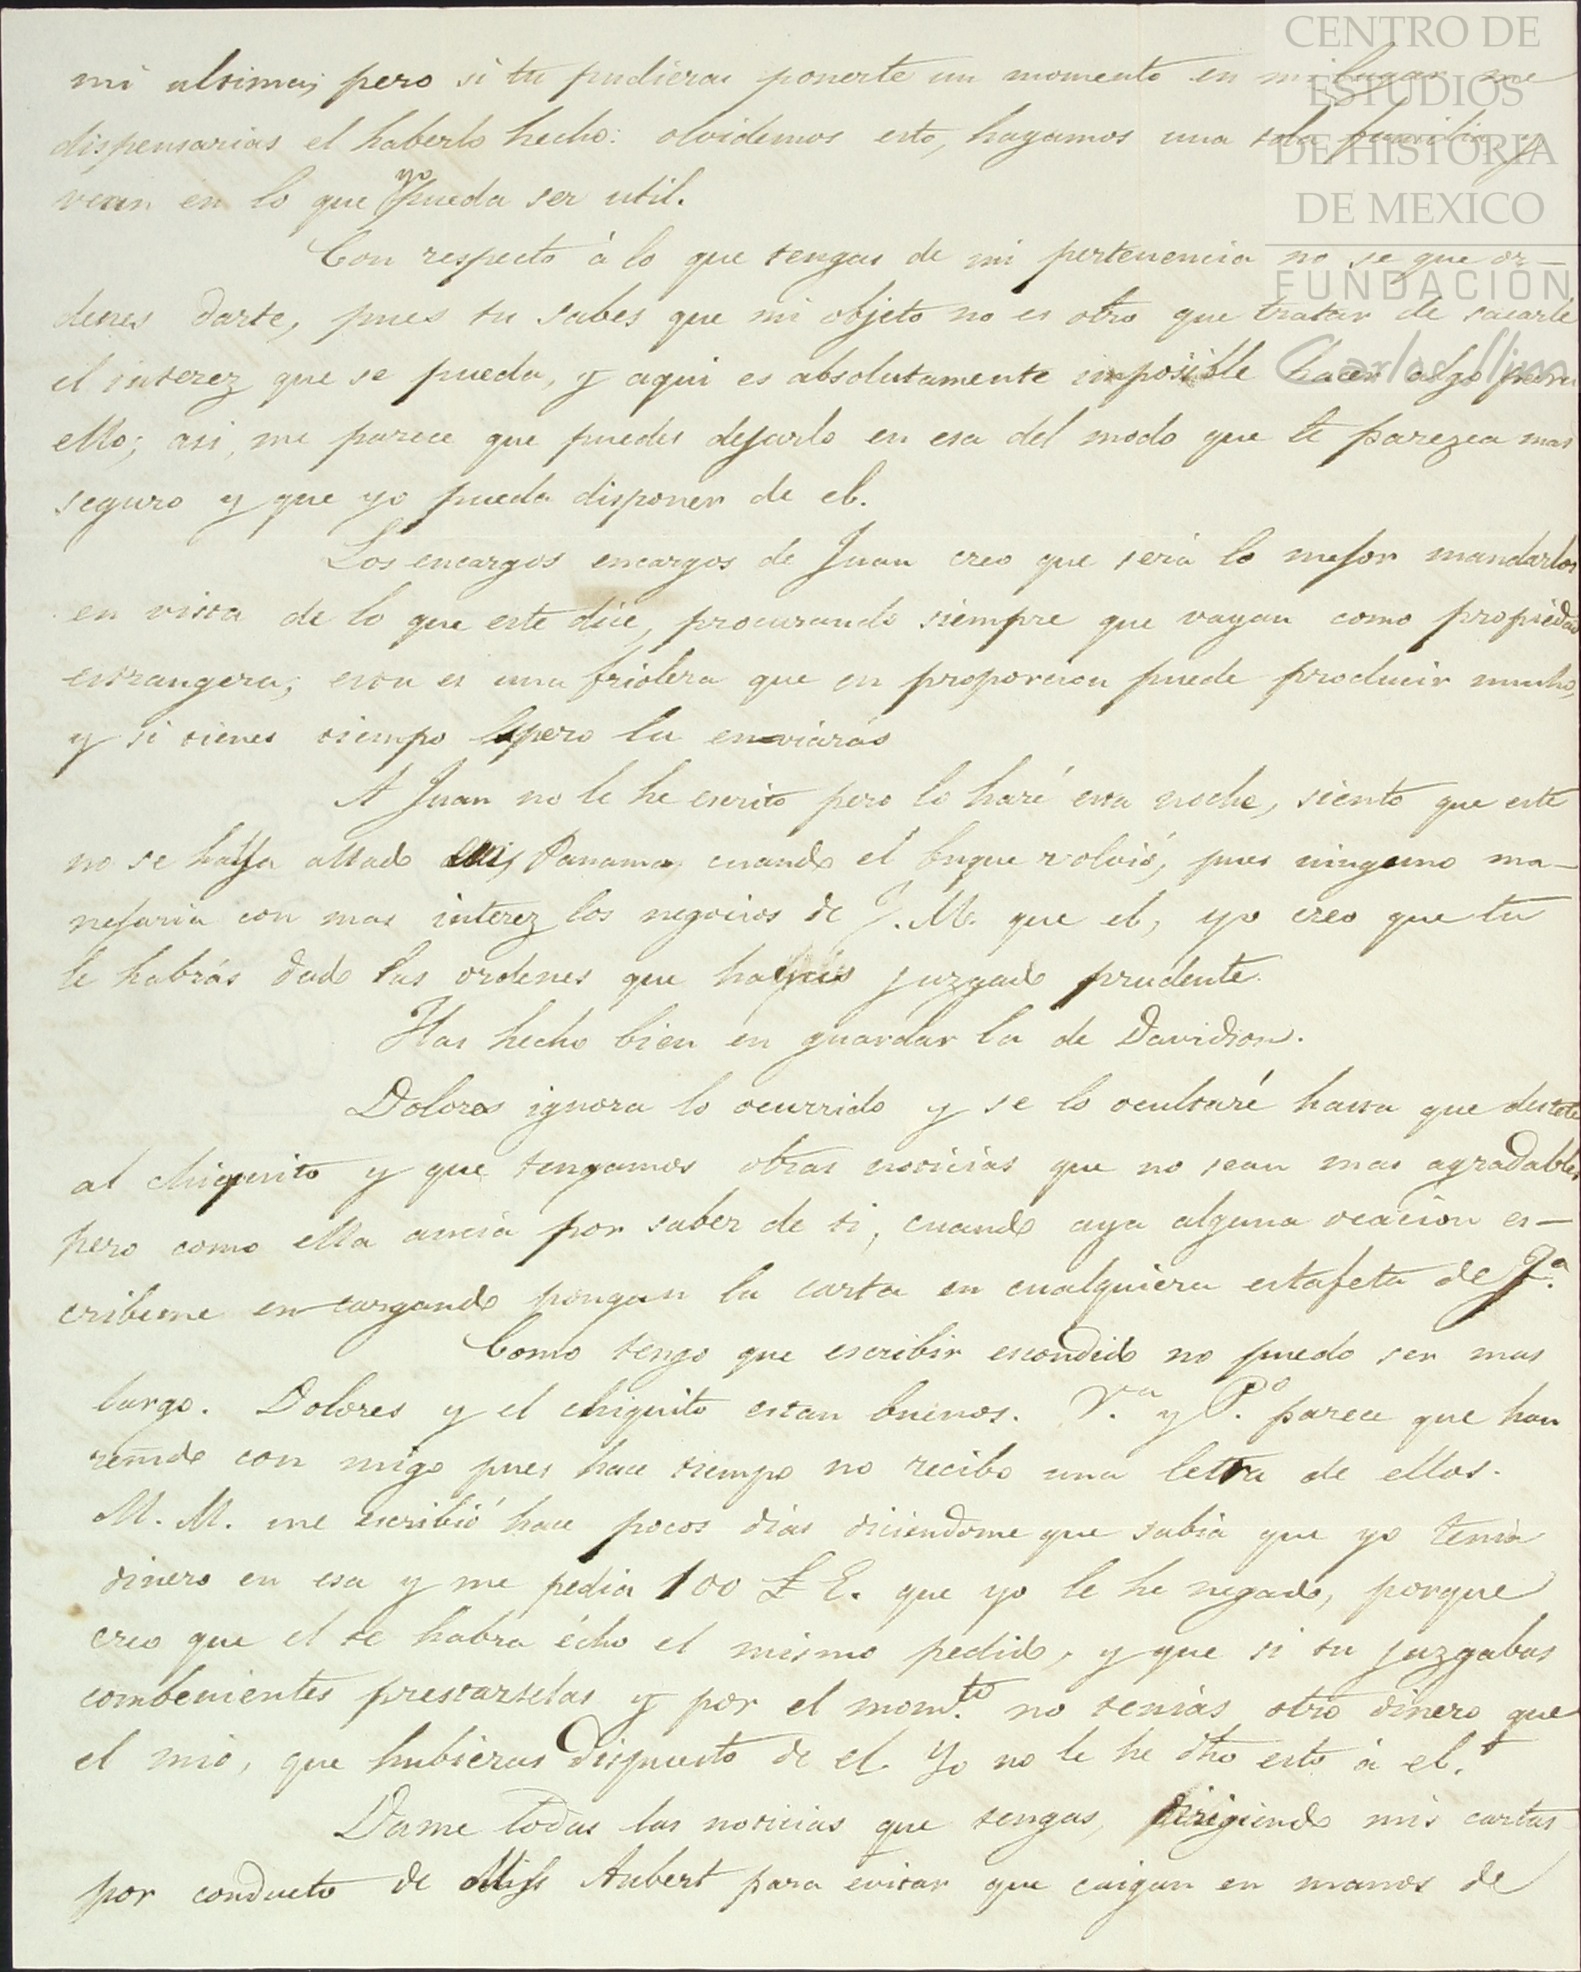 CENTRO DE
ESTUDIOS
DE HISTORIA
DE MEXICO
FUNDACIÓN
Carlos Slim
mi ultima; pero si tu pudieras ponerte un momento en mi lugar me
dispensarias el haberlo hecho: olvidemos esto, hagamos una sola familia y
vean en lo que yo pueda ser util.
Con respecto à lo que tengas de mi pertenencia no se que or-
denes darte, pues tu sabes que mi objeto no es otro que tratar de sacarle
el interez que se pueda, y aqui es absolutamente imposible hacer algo para
ello; asi, me parece que puedes dejarlo en esa del modo que te parezca mas
seguro y que yo pueda disponer de el.
Los encargos encargos de Juan creo que será lo mejor mandarlos
en vista de lo que este dice, procurando siempre que vayan como propiedad
estrangera; esta es una friolera que en proporcion puede producir mucho,
y si tienes tiempo espero la enviarás
A Juan no le he escrito pero lo haré esta noche, siento que este
no se haya allado en Panama, cuando el buque volvió, pues ninguno ma-
nejaria con mas interez los negocios de J. M. que el, yo creo que tu
le habrás dado las ordenes que hayas juzgado prudente.
Has hecho bien en guardar la de Davidson.
Dolores ignora lo ocurrido y se lo ocultaré hasta que destete
al chiquito y que tengamos otras noticias que no sean mas agradables
pero como ella ancia por saber de ti, cuando aya alguna ocacion es-
cribeme encargando pongan la carta en cualquiera estafeta de
Como tengo que escribir escondido no puedo ser mas
largo. Dolores y el chiquito estan buenos. V.ª y P.º parece que han
reñido con migo pues hace tiempo no recibo una letra de ellos.
M. M. me escribió hace pocos dias diciendome que sabia que yo tenia
dinero en esa y me pedia 100 £ E. que yo le he negado, porque
creo que el te habra écho el mismo pedido, y que si tu juzgabas
combenientes prestarselas y por el mom.to no tenias otro dinero que
el mio, que hubieras dispuesto de el. Yo no le he dho esto à el.
Dame todas las noticias que tengas, dirigiendo mis cartas
por conducto de Miss Aubert para evitar que caigan en manos de